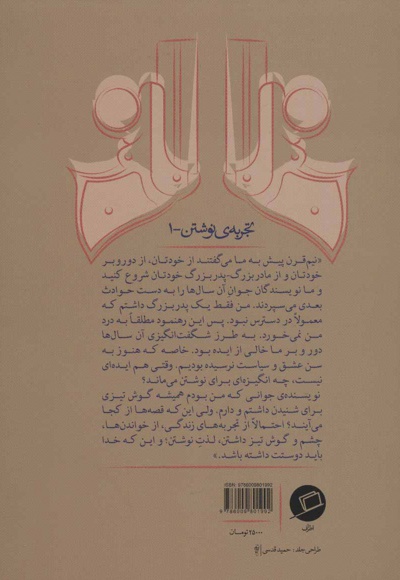 تجربه‌ی نوشتن-۱
«نیم‌قرن پیش به ما می‌گفتند از خودتان، از دوروبر
خودتان و از مادربزرگ-پدربزرگ خودتان شروع کنید
و ما نویسندگان جوانِ آن سال‌ها را به دست حوادث
بعدی می‌سپردند. من فقط یک پدربزرگ داشتم که
معمولاً در دسترس نبود. پس این رهنمود مطلقاً به درد
من نمی‌خورد. به طرز شگفت‌انگیزی آن سال‌ها
دور و بر ما خالی از ایده بود. خاصه که هنوز به
سن عشق و سیاست نرسیده بودیم. وقتی هم ایده‌ای
نیست، چه انگیزه‌ای برای نوشتن می‌ماند؟
نویسنده‌ی جوانی که من بودم همیشه گوش تیزی
برای شنیدن داشتم و دارم. ولی این‌که قصه‌ها از کجا
می‌آیند؟ احتمالاً از تجربه‌های زندگی، از خواندن‌ها،
چشم و گوش تیز داشتن، لذتِ نوشتن؛ و این که خدا
باید دوستت داشته باشد.»
ISBN: 9786008801992
9 786008 801992
۲۵۰۰۰ تومان
طراحی جلد: حمید قدسی